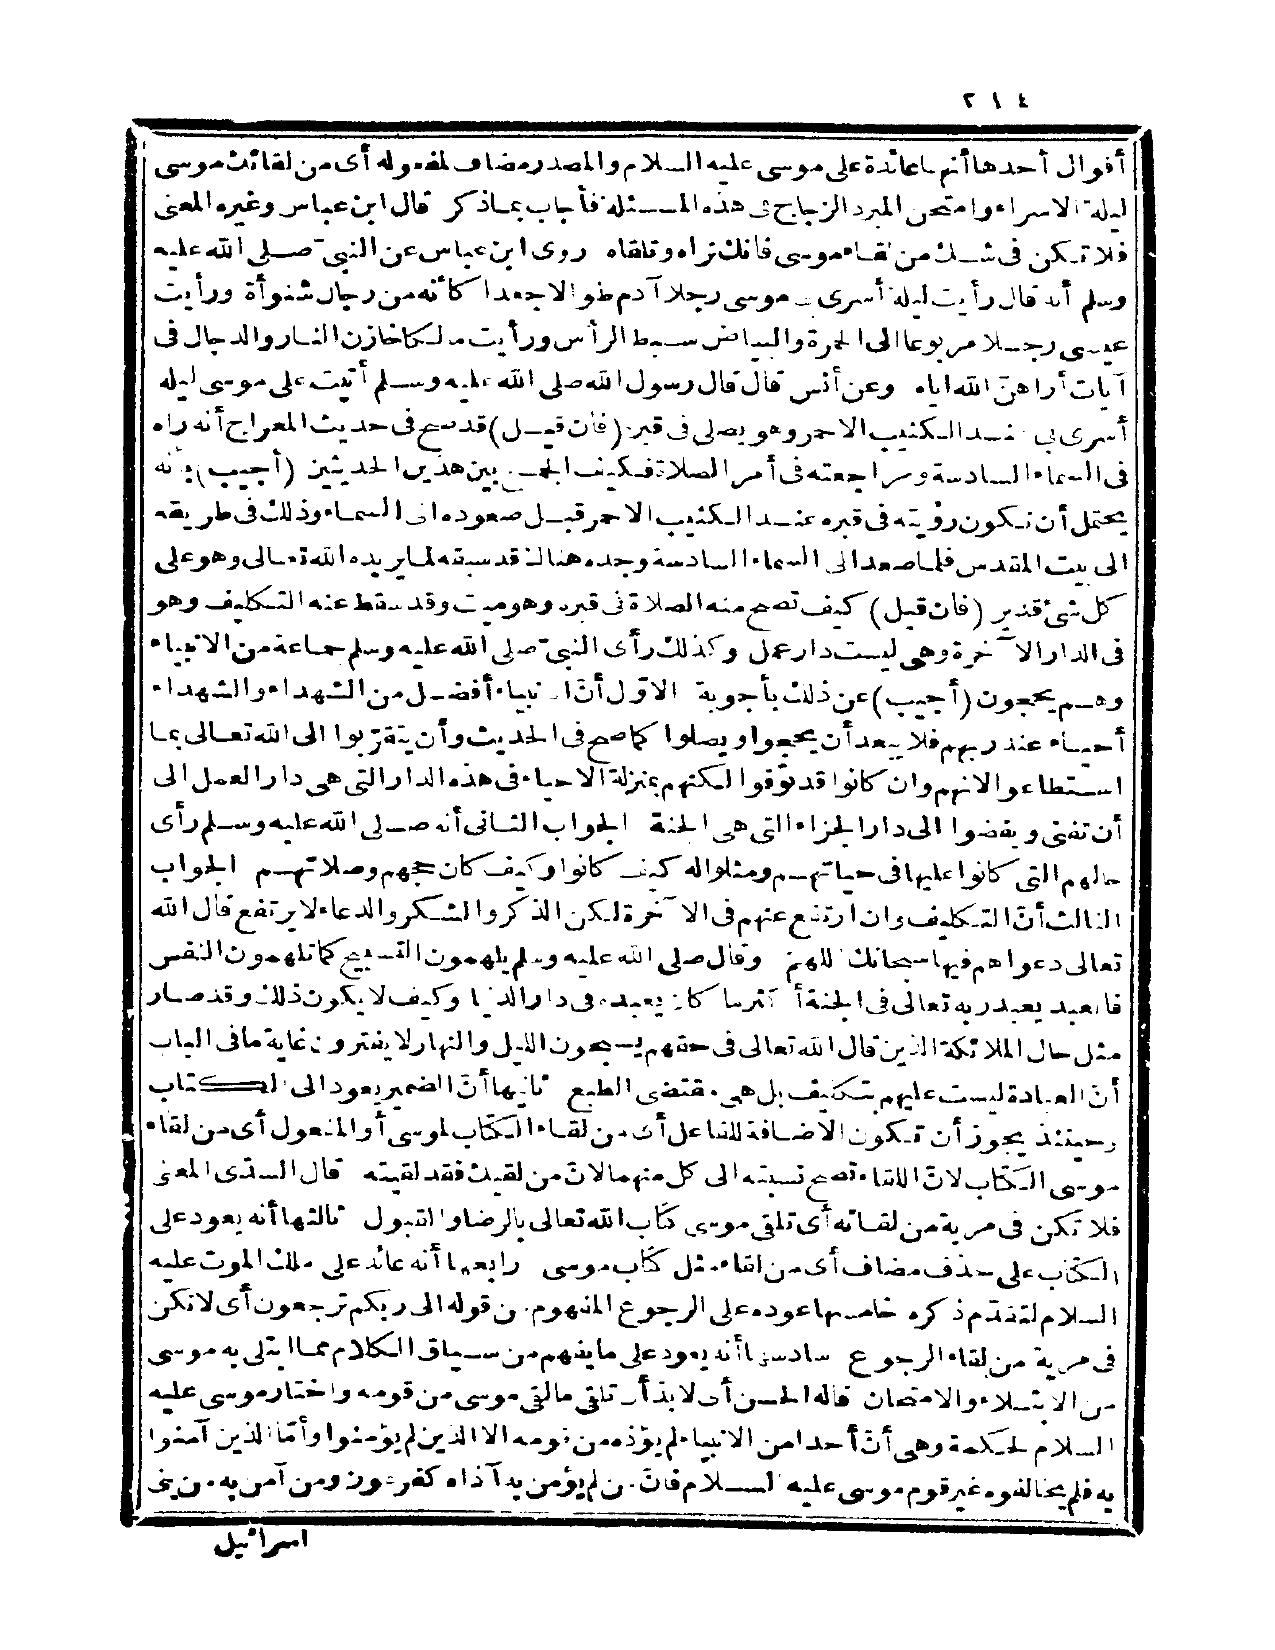 ٢١٤
أقوال أحدها أنها عائدة على موسى عليه السلام والمصدر مضاف لمفعوله أى من لقائك موسى
ليلة الاسراء وامتحن المبرد الزجاج فى هذه المسئلة فأجاب بماذكر قال ابن عباس وغيره المعنى
فلا تكن فى شك من لقاء موسى فانك تراه وتلقاه روى ابن عباس عن النبى صلى الله عليه
وسلم أنه قال رأيت ليلة أسرى بى موسى رجلا آدم طوالا جعدا كأنه من رجال شنوأة ورأيت
عيسى رجلا مربوعا الى الحمرة والبياض سبط الرأس ورأيت مالكا خازن النار والدجال فى
آيات أراهنّ الله اياه وعن أنس قال قال رسول الله صلى الله عليه وسلم أتيت على موسى ليلة
أسرى بى عند الكثيب الاحمر وهو يصلى فى قبره (فان قيل) قد صح فى حديث المعراج أنه راه
فى السماء السادسة ومراجعته فى أمر الصلاة فكيف الجمع بين هذين الحديثين (أجيب) بأنه
يحتمل أن تكون رؤيته فى قبره عند الكثيب الاحمر قبل صعوده الى السماء وذلك فى طريقه
الى بيت المقدس فلما صعد الى السماء السادسة وجده هنالك قد سبقه لما يريده الله تعالى وهو على
كل شئ قدير (فان قيل) كيف تصح منه الصلاة فى قبره وهو ميت وقد سقط عنه التكليف وهو
فى الدار الآخرة وهى ليست دار عمل وكذلك رأى النبىّ صلى الله عليه وسلم جماعة من الانبياء
وهم يحجون (أجيب) عن ذلك بأجوبة الاوّل أنّ الانبياء أفضل من الشهداء والشهداء
أحياء عند ربهم فلا يبعد أن يحجوا ويصلوا كما صح فى الحديث وأن يتقرّبوا الى الله تعالى بما
استطاعوا لانهم وان كانوا قد توّفوا لكنهم بمنزلة الاحياء فى هذه الدار التى هى دار العمل الى
أن تفنى ويفضوا الى دار الجزاء التى هى الجنة الجواب الثانى أنه صلى الله عليه وسلم رأى
حالهم التى كانوا عليها فى حياتهم ومثلوا له كيف كانوا وكيف كان حجهم وصلاتهم الجواب
الثالث أنّ التكليف وان ارتفع عنهم فى الآخرة لكن الذكر والشكر والدعاء لا يرتفع قال الله
تعالى دعواهم فيها سبحانك اللهم وقال صلى الله عليه وسلم يلهمون التسبيح كما تلهمون النفس
فالعبد يعبد ربه تعالى فى الجنة أكثر مما كان يعبده فى دار الدنيا وكيف لا يكون ذلك وقد صار
مثل حال الملائكة الذين قال الله تعالى فى حقهم يسبحون الليل والنهار لا يفترون غاية ما فى الباب
أنّ العبادة ليست عليهم بتكليف بل هى مقتضى الطبع ثانيها أنّ الضمير يعود الى الكتاب
وحينئذ يجوز أن تكون الاضافة للفاعل أى من لقاء الكتاب لموسى أو المفعول أى من لقاء
موسى الكتاب لانّ اللقاء تصح نسبته الى كل منهما لانّ من لقيك فقد لقيته قال السدّى المعنى
فلا تكن فى مرية من لقائه أى تلقى موسى كتاب الله تعالى بالرضا والقبول ثالثها أنه يعود على
الكتاب على حذف مضاف أى من لقاء مثل كتاب موسى رابعها أنه عائد على ملك الموت عليه
السلام لتقدّم ذكره خامسها عوده على الرجوع المفهوم من قوله الى ربكم ترجعون أى لا تكن
فى مرية من لقاء الرجوع سادسها أنه يعود على ما يفهم من سياق الكلام مما ابتلى به موسى
من الابتلاء والامتحان قاله الحسن أى لا بدّ أن تلقى ما لقى موسى من قومه واختار موسى عليه
السلام لحكمة وهى أنّ أحدا من الانبياء لم يؤذه من قومه الا الذين لم يؤمنوا وأمّا الذين آمنوا
به فلم يخالفوه غير قوم موسى عليه السلام فان من لم يؤمن به آذاه كفرعون ومن آمن به من بنى
اسرائيل